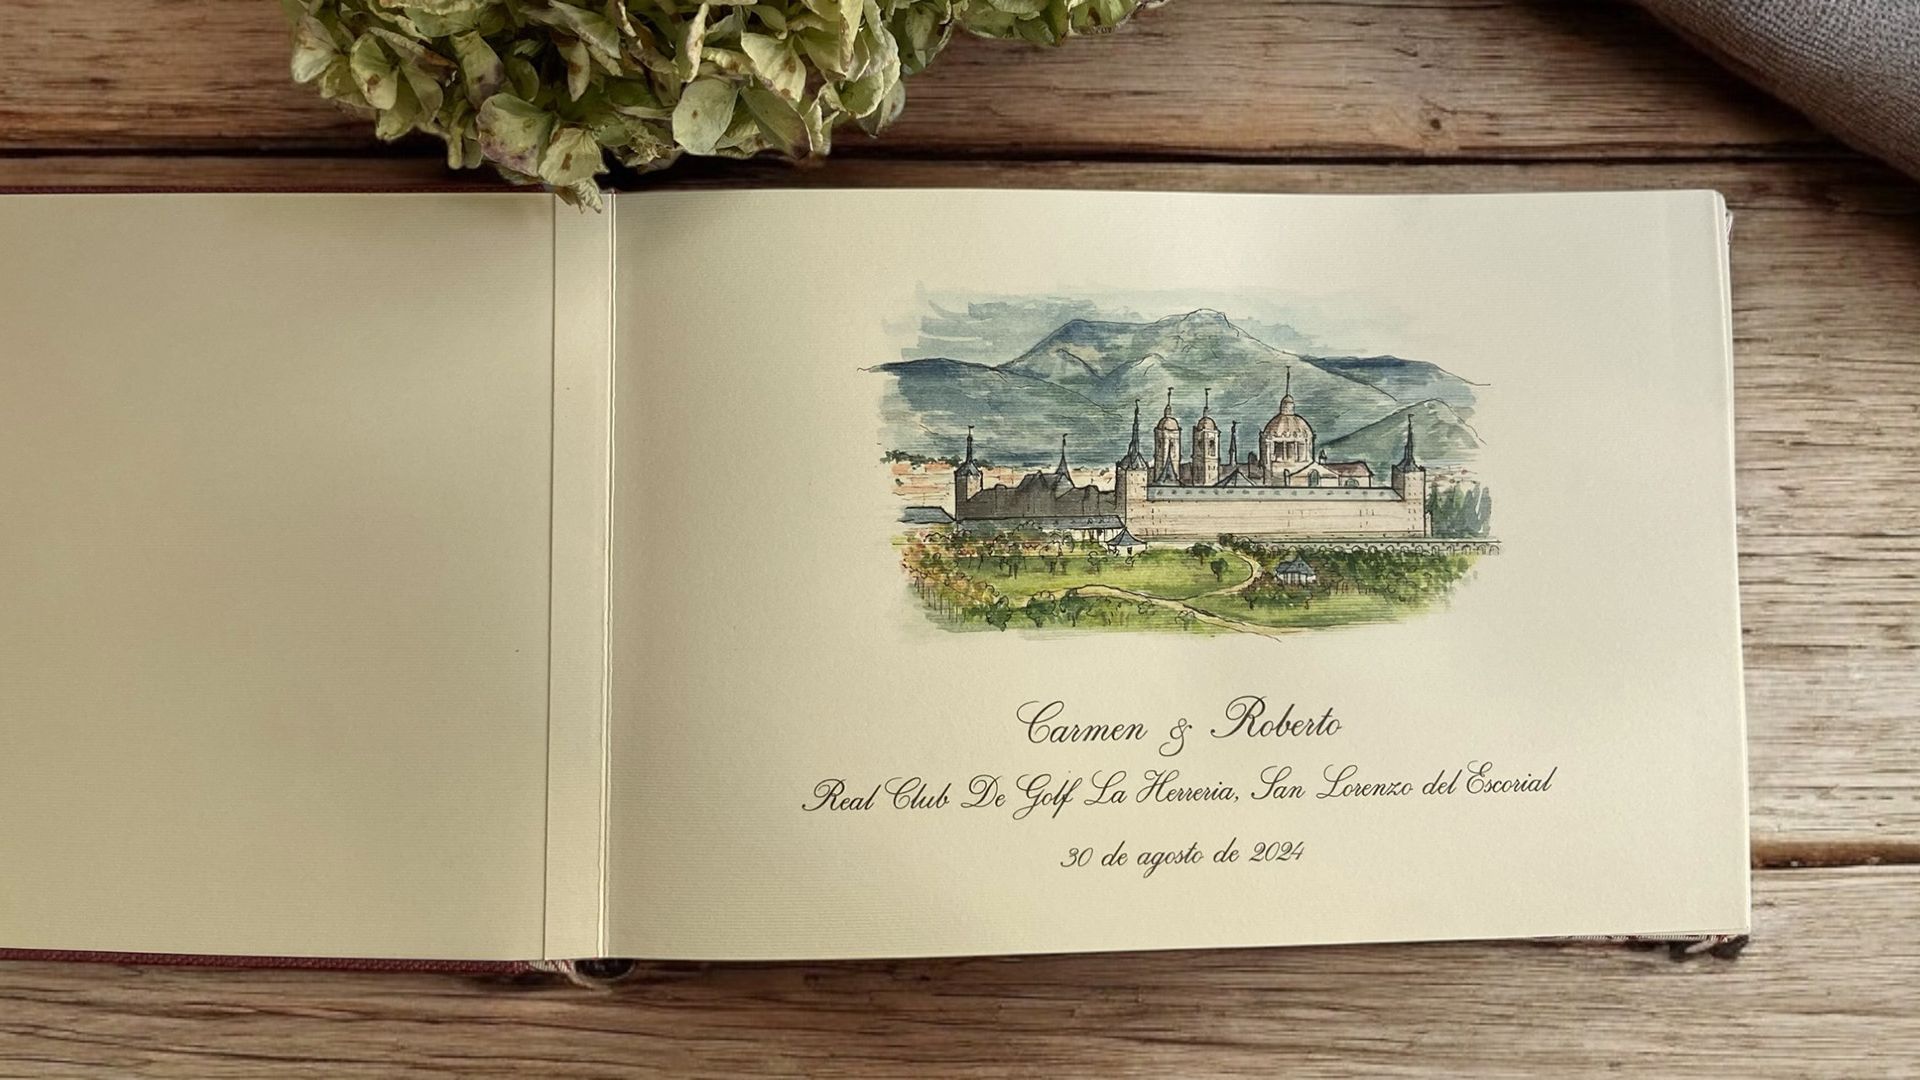 Carmen & Roberto
Real Club De Golf La Herreria, San Lorenzo del Escorial
30 de agosto de 2024